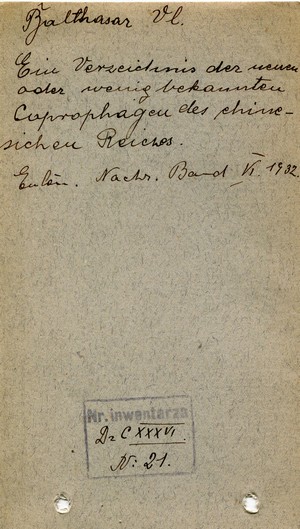 Balthasar Vl.
Ein Verzeichnis der neuen
oder wenig bekannten
Coprophagen des chine-
sichen Reiches.
Entom. Nachr. Band VI. 1932.
Nr. inwentarza
Dz C XXXVI
N: 21.